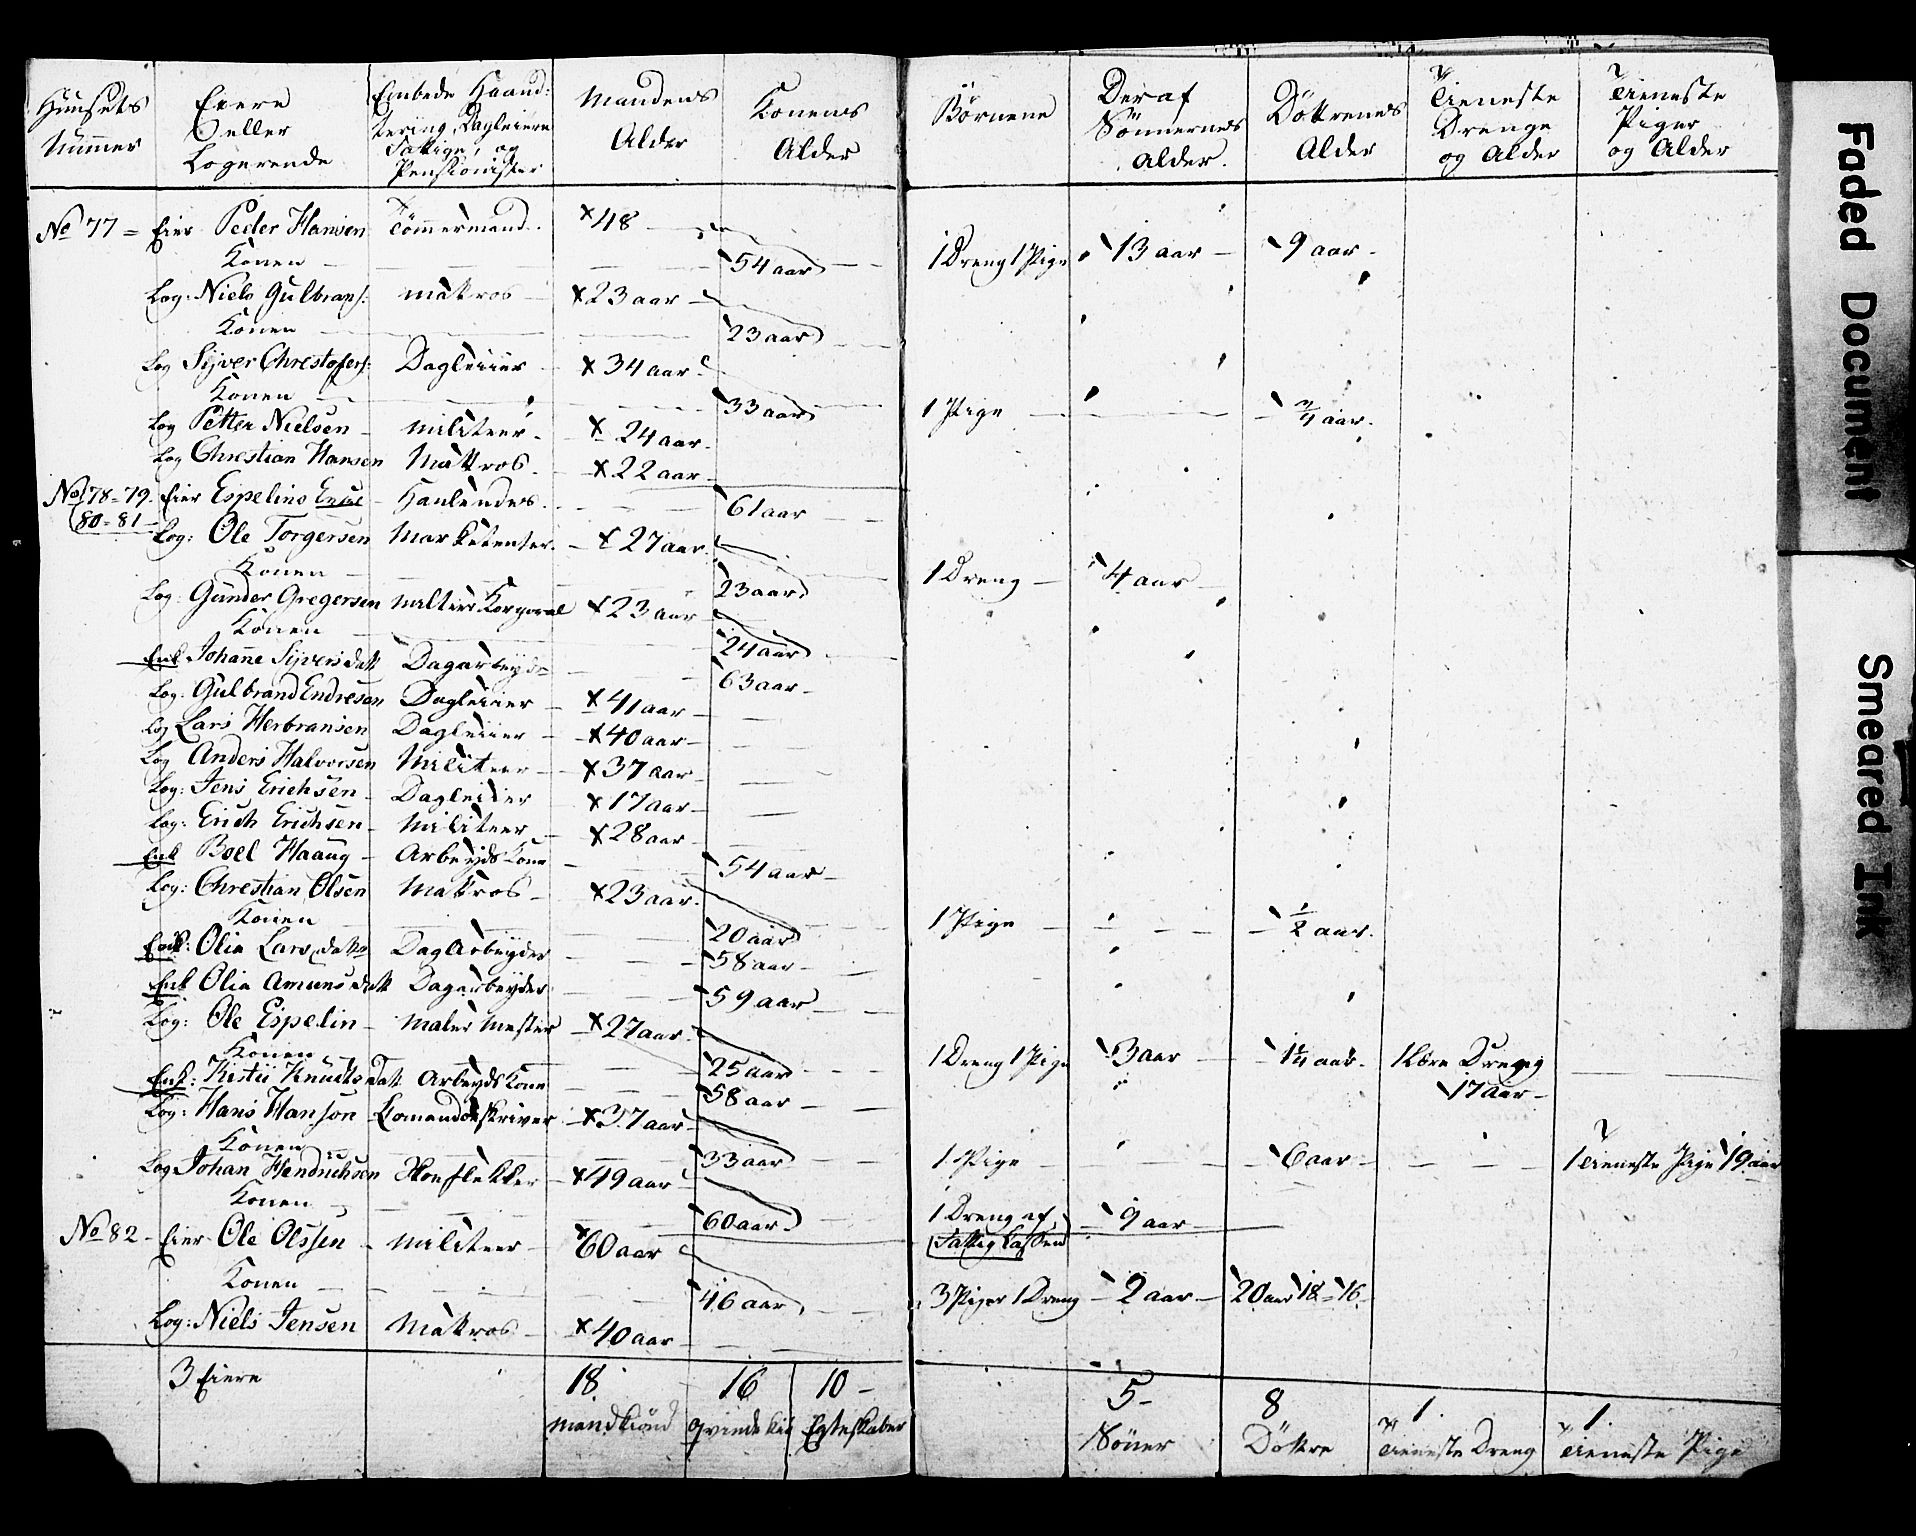 Huusets Nummer | Eiere eller Logerende | Embede Haand:tering, Dagleiere Fattige, og Pensionister | Mandens Alder | Konens Alder | Börnene | Deraf Sönnernes Alder. | Döttrenes Alder | Tieneste Drenge og Alder | Tieneste Piger og Alder
No 77 = Eier Peder Hansen | Tömmermand. | x 48
Konen | 54 aar | 1 Dreng 1 Pige | 13 aar | 9 aar
Log: Niels Gulbrans: | matros | x 23 aar
Konen | 23 aar
Log Sijver Chrestofers: | Dagleiier | x 34 aar
Konen | 33 aar | 1 Pige | 3/4 aar.
Log Petter Nielsen | militeer | x 24 aar
Log Chrestian Hansen | Mattros | x 22 aar
No 78 = 79. Eier Espelins Enke | Hanlendes | 61 aar
80 = 81
Log: Ole Torgersen | Marketenter. | x 27 aar
Konen | 23 aar | 1 Dreng | 4 aar
Log: Gunder Gregersen | militer Korporal | x 23 aar
Konen | 24 aar
Enk Johanne Sijversdatt | Dagarbeyde | 63 aar
Log: Gulbrand Endresen | Dagleiier | x 41 aar
Log Lars Herbransen | Dagleiier | x 40 aar
Log Anders Halvorsen | Militeer | x 37 aar
Log: Jens Erichsen | Dagleiier | x 17 aar
Log: Erich Erichsen | Militeer | x 28 aar
Enk Boel Haaug | Arbeyds Kone | 54 aar
Log: Chrestian Olsen | Matros | x 23 aar.
Konen | 20 aar | 1 Pige | 1/2 aar.
Enk: Olia Larsdatter | DagArbeyder | 58 aar
Enk Olia Amunsdatt | Dagarbeyder | 59 aar
Log: Ole Espelin | Maler Mester | x 27 aar.
Konen | 25 aar | 1 Dreng 1 Pige | 3 aar | 1 1/4 aar. | 1 Lære Dreng
Enk: Kistii Knudtsdatt | Arbeyds Kone | 58 aar | 17 aar
Log: Hans Hanson | Comandörskriver | x 37 aar
Konen | 33 aar | 1 Pige | 6 aar | 1 Tieneste Pige 19 aar
Log Johan Hendrichsen | x 49 aar
Konen | 60 aar | 1 Dreng af Fattig Cassen | 9 aar
No 82 Eier Ole Olssen | militeer | x 60 aar
Konen | 46 aar | 3 Piger 1 Dreng | 2 aar | 20 aar 18 = 16
Log: Niels Jensen | Matros | x 40 aar
3 Eiere | 18 | 16 | 10 | 5 | 8 | 1. | 1.
mandkiönd | qvindekiö | Egteskaber | Sönner | Döttre | Tieneste Dreng | Tieneste Pige
Faded Document
Smeared Ink